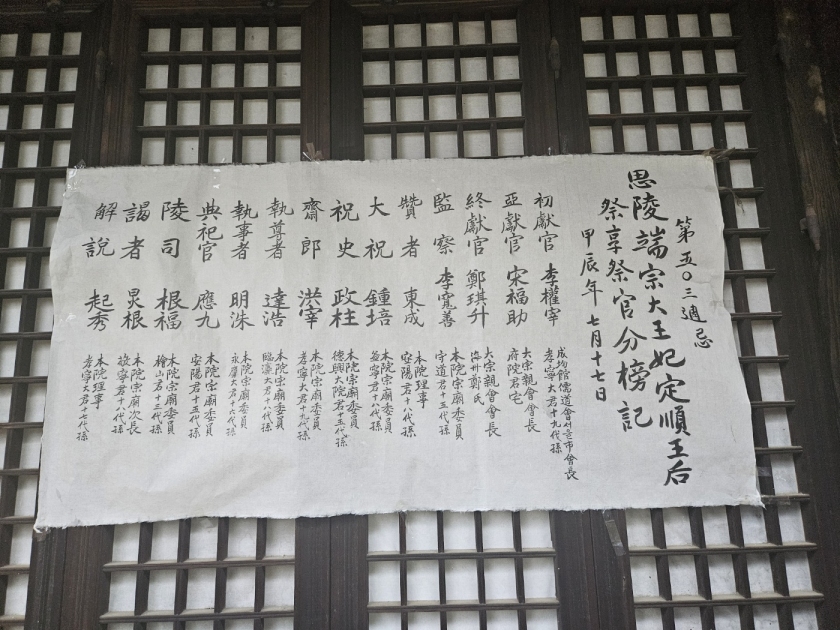 第五〇三週忌
思陵端宗大王妃定順王后
祭享祭官分榜記
甲辰年 七月十七日
初獻官 李權宰 成均館儒道會서울市會長
孝寧大君十九代孫
亞獻官 宋福助 大宗親會會長
府院君宅
終獻官 鄭琪升 大宗親會會長
海州鄭氏
監察 李寬善 本院宗廟委員
守道君十五代孫
贊者 東成 本院理事
安陽君十八代孫
大祝 鍾培 本院宗廟委員
益寧君十八代孫
祝史 政柱 本院宗廟委員
德興大院君十五代孫
齋郞 洪宰 本院宗廟委員
孝寧大君十九代孫
執尊者 達浩 本院宗廟委員
臨瀛大君十八代孫
執事者 明洙 本院宗廟委員
永膺大君十六代孫
典祀官 應九 本院宗廟委員
安陽君十五代孫
陵司 根福 本院宗廟委員
檜山君十三代孫
謁者 炅根 本院宗廟次長
敬寧君十八代孫
解說 起秀 本院理事
孝寧大君十七代孫